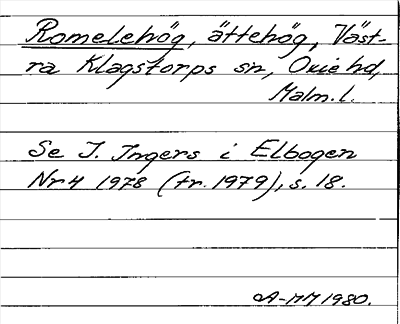 Romelehög, ättehög, Väst-
ra Klagstorps sn, Oxie hd,
Malm. l.
Se I. Ingers i Elbogen
Nr 4 1978 (tr. 1979), s. 18.
A-MM 1980.